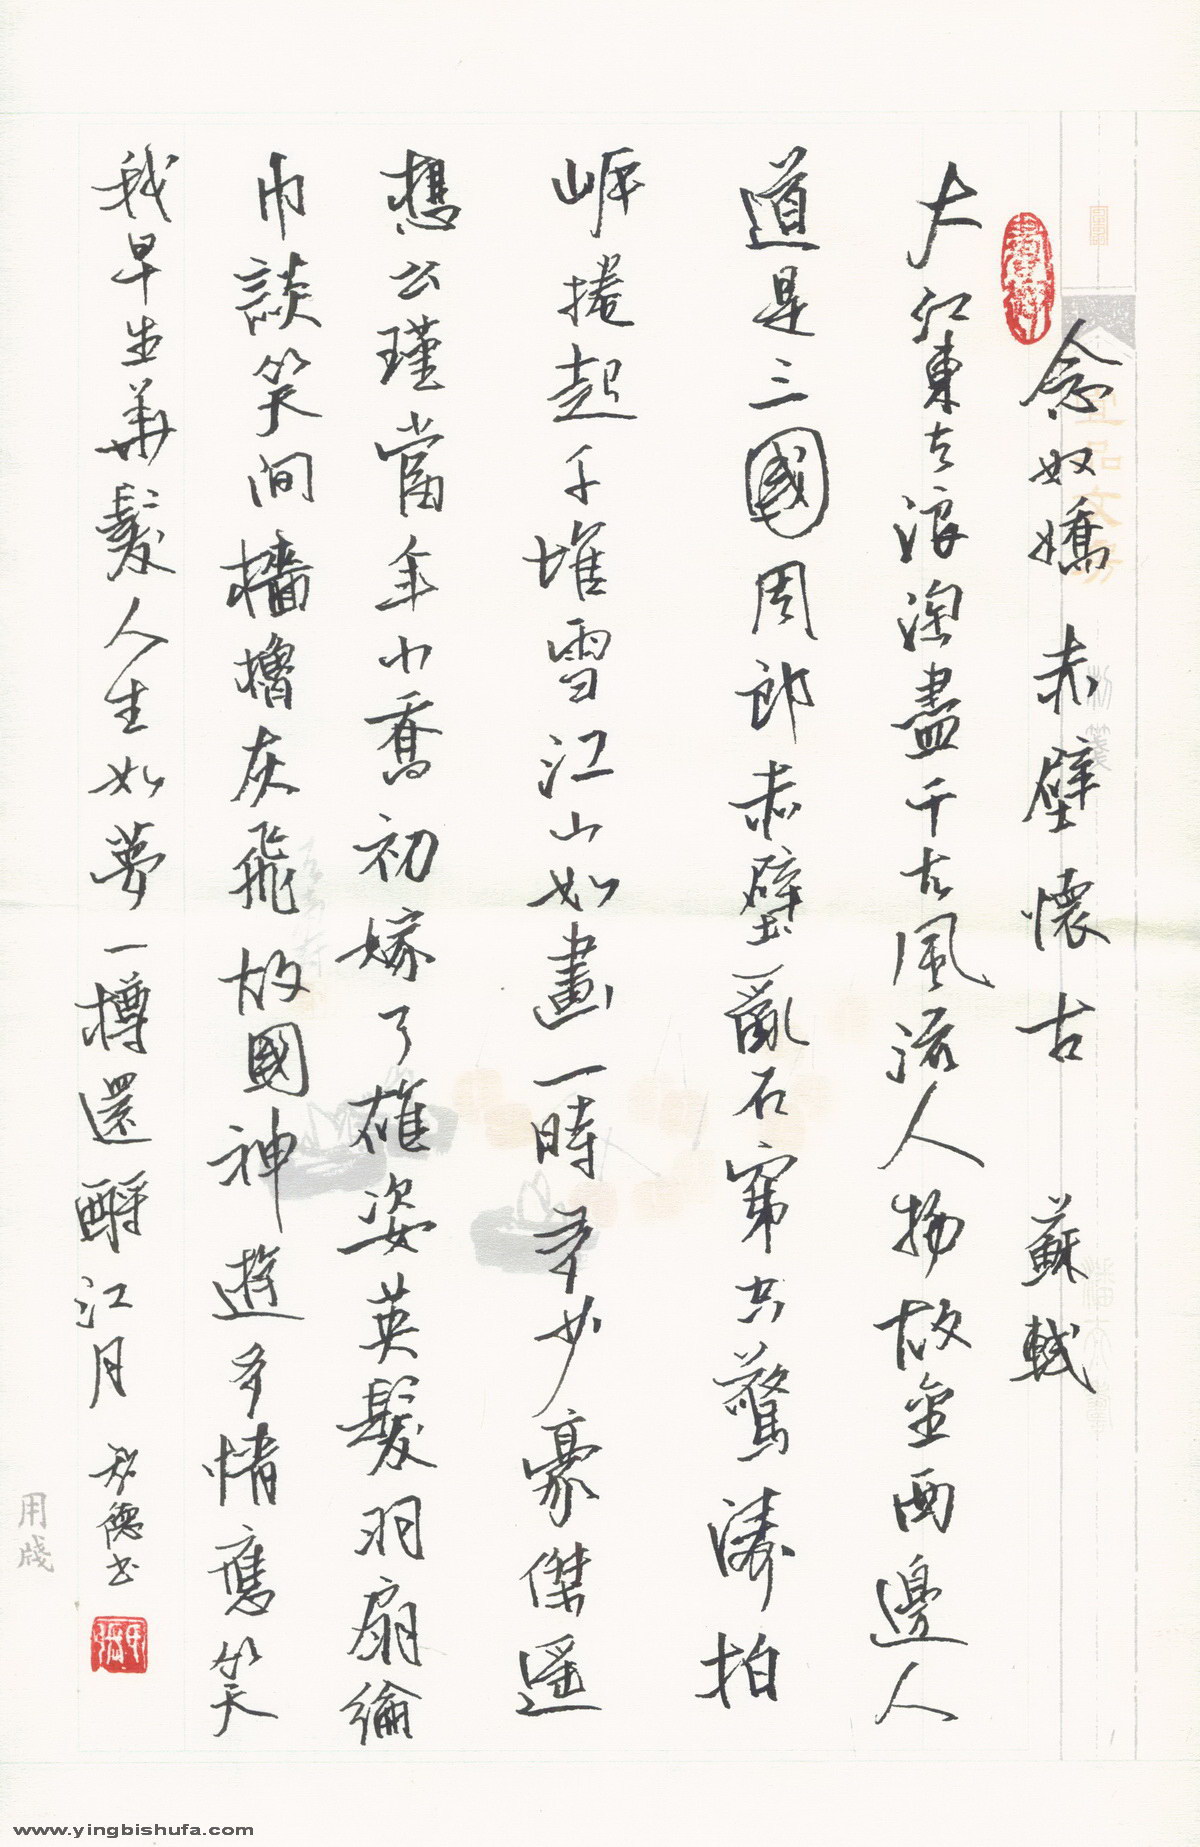 念奴嬌 赤壁懷古 蘇軾
大江東去浪淘盡千古風流人物故垒西邊人
道是三國周郎赤壁亂石穿空驚濤拍
岸捲起千堆雪江山如畫一時多少豪傑遥
想公瑾當年小喬初嫁了雄姿英髮羽扇綸
巾談笑间檣櫓灰飛故國神遊多情應笑
我早生華髮人生如夢一樽還酹江月 德书
用牋
www.yingbishufa.com